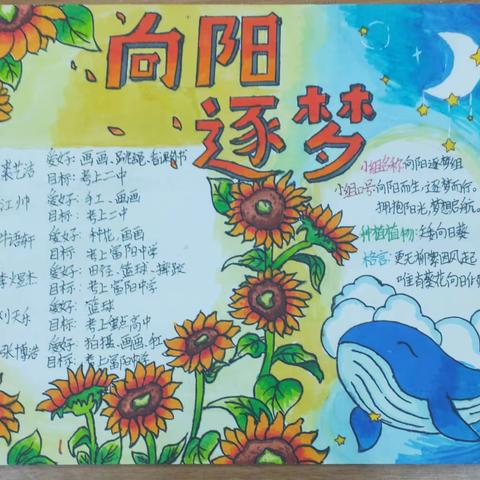 向阳
逐梦
爱好:画画、
目标:考上二中
江帅
爱好:手工、画画
目标:考上二中
爱好:种花、画画
目标:考上富阳中学
爱好:田径、篮球、
目标:考上富阳中学
爱好:篮球
目标:考上重点高中
张博浩
爱好:拍摄、画画、
目标:考上富阳中学
小组名称:向阳逐梦组
小组口号:向阳而生,逐梦而行。
拥抱阳光,梦想启航。
种植植物:矮向日葵
格言:更无柳絮因风起
唯有葵花向日倾